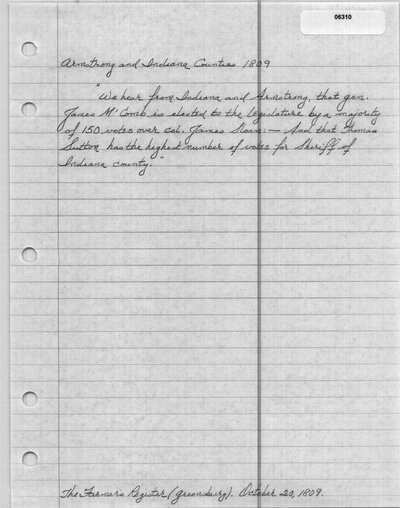 06310
Armstrong and Indiana Counties 1809
"We hear from Indiana and Armstrong, that gen.
James M'Comb is elected to the legislature by a majority
of 150 votes over col. James Sloan:— And that Thomas
Sutton has the highest number of votes for Sheriff of
Indiana county."
The Farmers Register (Greensburg). October 20, 1809.